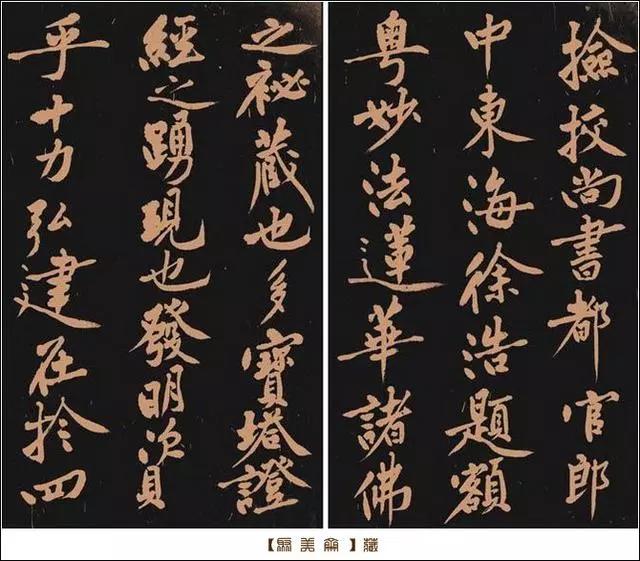 撿挍尚書都官郎
中東海徐浩題額
粤妙法蓮華諸佛
之祕藏也多寶塔證
經之踴現也發明資
乎十力弘建在扵四
美 】藏